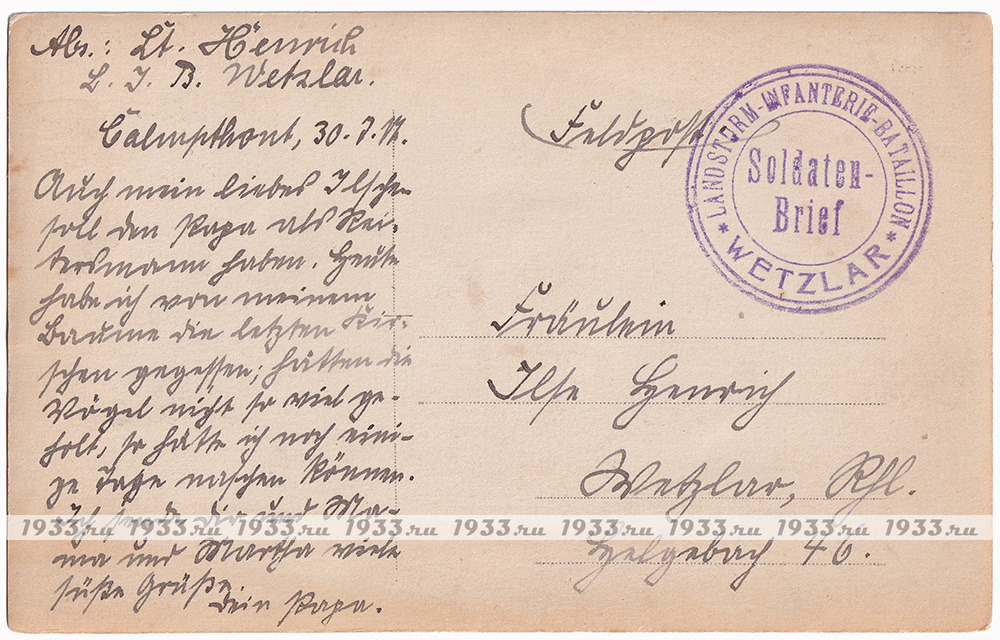 Abs.: Lt. Henrich
L. I. B. Wetzlar.
Calmpthout, 30.7.17.
Auch mein liebes Ilsche-
soll den Papa als Rei-
tersmann haben. Heute
habe ich von meinem
Baume die letzten Kir-
schen gegessen; hätten die
Vögel nicht so viel ge-
holt, so hätte ich noch eini-
ge Tage naschen können.
Ich sende dir und Ma-
ma und Martha viele
süße Grüße.
Dein Papa.
Feldpost
LANDSTURM-INFANTERIE-BATAILLON
* WETZLAR *
Soldaten-
Brief
Fräulein
Ilse Henrich
Wetzlar, Rhl.
Helgebach 46.
1933.ru 1933.ru 1933.ru 1933.ru 1933.ru 1933.ru 1933.ru 1933.ru 1933.ru